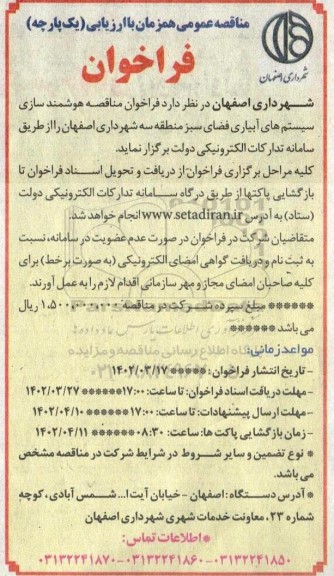 مناقصه عمومی همزمان با ارزیابی (یک پارچه)
شهرداری اصفهان
فراخوان
شهرداری اصفهان در نظر دارد فراخوان مناقصه هوشمند سازی
سیستم های آبیاری فضای سبز منطقه سه شهرداری اصفهان را از طریق
سامانه تدارکات الکترونیکی دولت برگزار نماید.
کلیه مراحل برگزاری فراخوان از دریافت و تحویل اسناد فراخوان تا
بازگشایی پاکتها از طریق درگاه سامانه تدارکات الکترونیکی دولت
(ستاد) به آدرس www.setadiran.ir انجام خواهد شد.
متقاضیان شرکت در فراخوان در صورت عدم عضویت در سامانه، نسبت
به ثبت نام و دریافت گواهی امضای الکترونیکی (به صورت برخط) برای
کلیه صاحبان امضای مجاز و مهر سازمانی اقدام لازم را به عمل آورند.
****** مبلغ سپرده شرکت در مناقصه: ۱،۵۰۰،۰۰۰،۰۰۰ ریال
می باشد ******
مواعد زمانی:
- تاریخ انتشار فراخوان: ***** ۱۴۰۲/۰۳/۱۷
- مهلت دریافت اسناد فراخوان: تا ساعت: ۱۷:۰۰****** ۱۴۰۲/۰۳/۲۷
- مهلت ارسال پیشنهادات: تا ساعت: ۱۷:۰۰****** ۱۴۰۲/۰۴/۱۰
- زمان بازگشایی پاکت ها: ساعت: ۰۸:۳۰****** ۱۴۰۲/۰۴/۱۱
* نوع تضمین و سایر شروط در شرایط شرکت در مناقصه مشخص
می باشد.
* آدرس دستگاه: اصفهان - خیابان آیت ا... شمس آبادی، کوچه
شماره ۲۳، معاونت خدمات شهری شهرداری اصفهان
* اطلاعات تماس:
۰۳۱۳۲۲۴۱۸۷۰-۰۳۱۳۲۲۴۱۸۶۰-۰۳۱۳۲۲۴۱۸۵۰